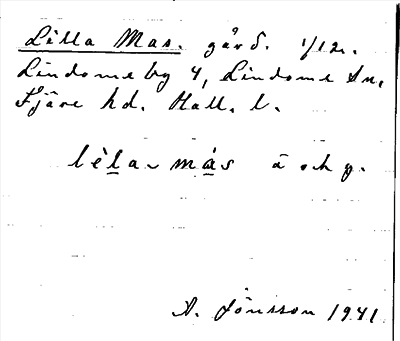 Lilla Mas. gård. 1/12.
Lindome by 4, Lindome sn,
Fjäre hd. Hall. l.
lèla- más ä och y.
A. Jönsson 1941